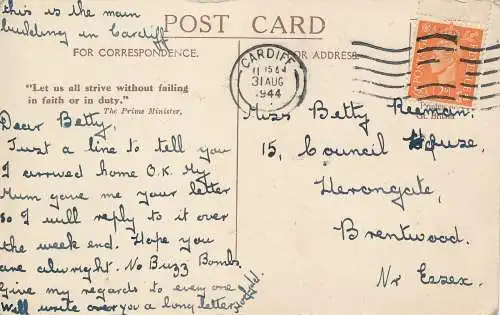 this is the main
building in Cardiff
POST CARD
FOR CORRESPONDENCE.
FOR ADDRESS.
"Let us all strive without failing
in faith or in duty."
The Prime Minister.
CARDIFF
31 AUG
1944
Dear Betty,
Just a line to tell you
I arrived home O.K. My
Mum gave me your letter
so I will reply to it over
the week end. Hope you
are alwright. No Buzz Bombs.
Give my regards to everyone
Will write over you a long letter
Miss Betty
15, Council House.
Herongate,
Brentwood.
Nr Essex.